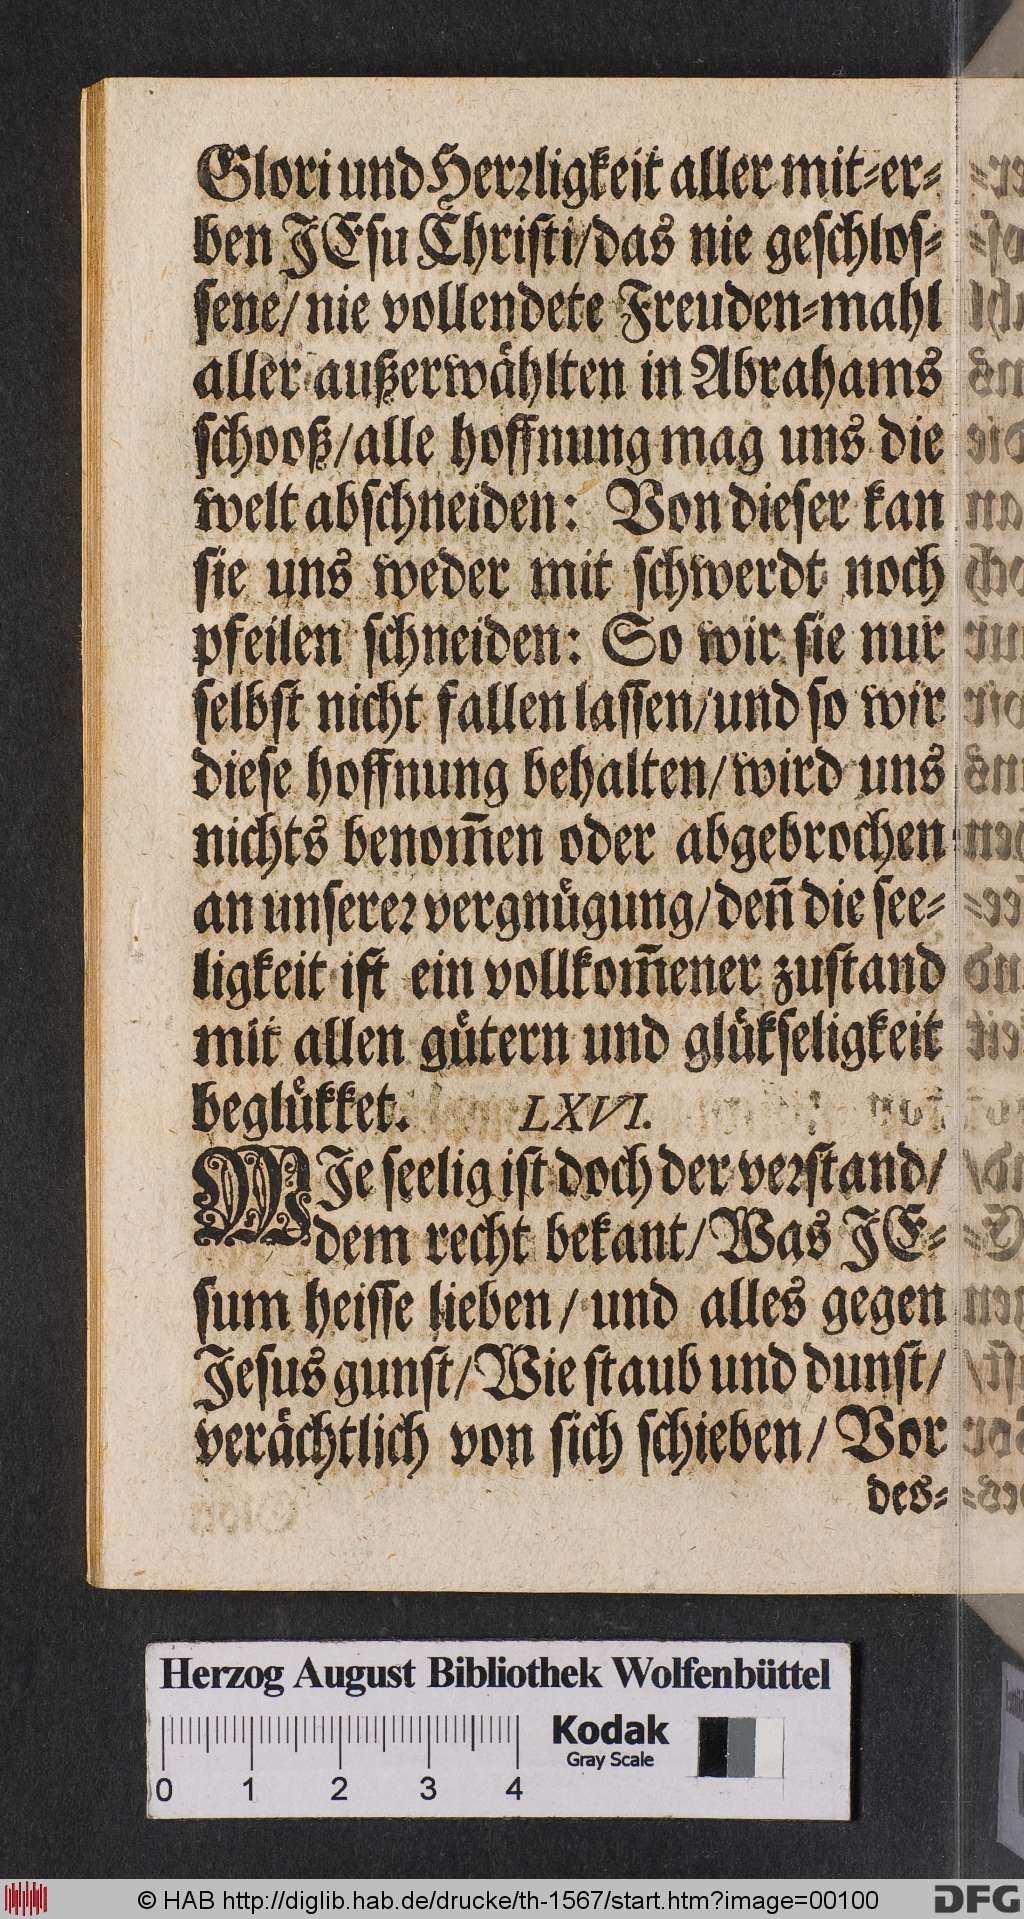 Glori und Herꝛligkeit aller mit-er-
ben JEsu Christi/das nie geschlos-
sene/nie vollendete Freuden-mahl
aller außerwåhlten in Abrahams
schooß/alle hoffnung mag uns die
welt abschneiden: Von dieser kan
sie uns weder mit schwerdt noch
pfeilen schneiden: So wir sie nur
selbst nicht fallen lassen/und so wir
diese hoffnung behalten/wird uns
nichts benom̃en oder abgebrochen
an unsereꝛ vergnůgung/deñ die see-
ligkeit ist ein vollkom̃ener zustand
mit allen gůtern und glůkseligkeit
beglůkket. LXVI.
WJe seelig ist doch der veꝛstand/
dem recht bekant/Was JE-
sum heisse lieben/und alles gegen
Jesus gunst/Wie staub und dunst/
veråchtlich von sich schieben/Vor
des-
Herzog August Bibliothek Wolfenbüttel
Kodak
Gray Scale
0 1 2 3 4
© HAB http://diglib.hab.de/drucke/th-1567/start.htm?image=00100
DFG